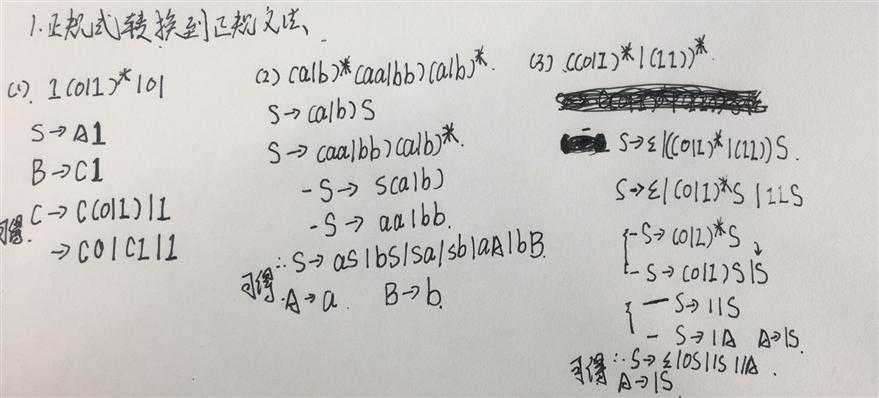 1.正规式转换到正规文法、
(1). 1(0|1)*101
S→A1
B→C1
可得. C→C(0|1)|1
→C0|C1|1
(2) (a|b)*(aa|bb)(a|b)*.
S→(a|b)S
S→(aa|bb)(a|b)*.
-S→S(a|b)
-S→aa|bb.
可得∴S→aS|bS|Sa|Sb|aA|bB.
A→a. B→b.
(3).((0|1)*|(11))*.
S→ε|((0|1)*|(11))S.
S→ε|(0|1)*S|11S
-S→(0|1)*S
-S→(0|1)S|S
-S→11S
-S→1A A→1S.
可得∴S→ε|0S|1S|1A.
A→1S.